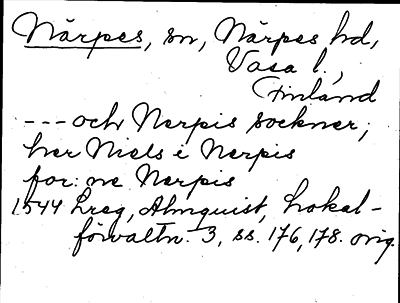 Närpes, sn, Närpes hd,
Vasa l.,
Finland
--- och Nerpis sockner;
her Niels i Nerpis
for: ne Nerpis
1544 Lreg, Almquist, Lokal-
förvaltn. 3, ss. 176, 178. orig.